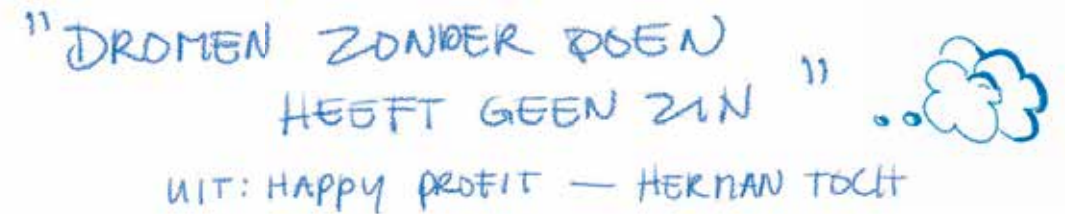 "DROMEN ZONDER DOEN
HEEFT GEEN ZIN"
UIT: HAPPY PROFIT — HERMAN TOCH